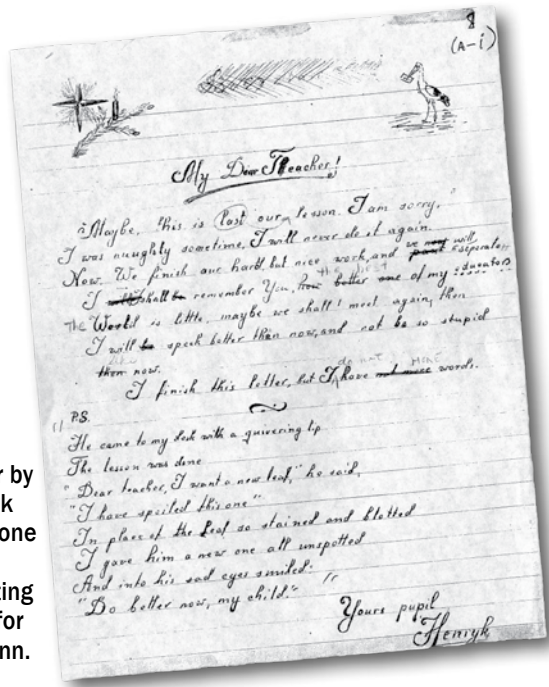 8
(A-i)
My Dear Theacher!
"Maybe, this is last our lesson. I am sorry.
I was nuughty sometime, I will never do it again.
Now. We finish our hard, but nice work, and we will
separate
I shall remember You, THE BEST one of my educators
THE World is little, maybe we shall! meet again, then
I will speak better then now, and not be so stupid
then now.
I finish this letter, but I do not have MORE words.
P.S.
He came to my desk with a quivering lip
The lesson was done
"Dear teacher, I want a new leaf," he said,
"I have spoiled this one"
In place of the leaf so stained and blotted
I gave him a new one all unspotted
And into his sad eyes smiled:
"Do better now, my child." "
Yours pupil
Henryk
r by
k
one
ting
for
nn.